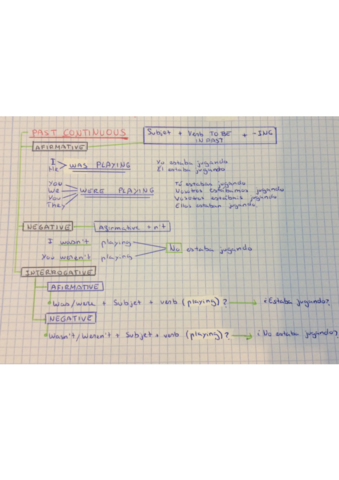 PAST CONTINUOUS
Subject + Verb TO BE + -ING
IN PAST
AFIRMATIVE
I
He
WAS PLAYING
Yo estaba jugando
Él estaba jugando
You
We
You
They
WERE PLAYING
Tú estabas jugando
Nosotros estábamos jugando
Vosotros estabais jugando
Ellos estaban jugando
NEGATIVE
Afirmative + n't
I wasn't playing
You weren't playing
No estaba jugando
INTERROGATIVE
AFIRMATIVE
Was/were + Subject + verb (playing) ? → ¿Estaba jugando?
NEGATIVE
Wasn't/Weren't + Subject + verb (playing) ? → ¿No estaba jugando?